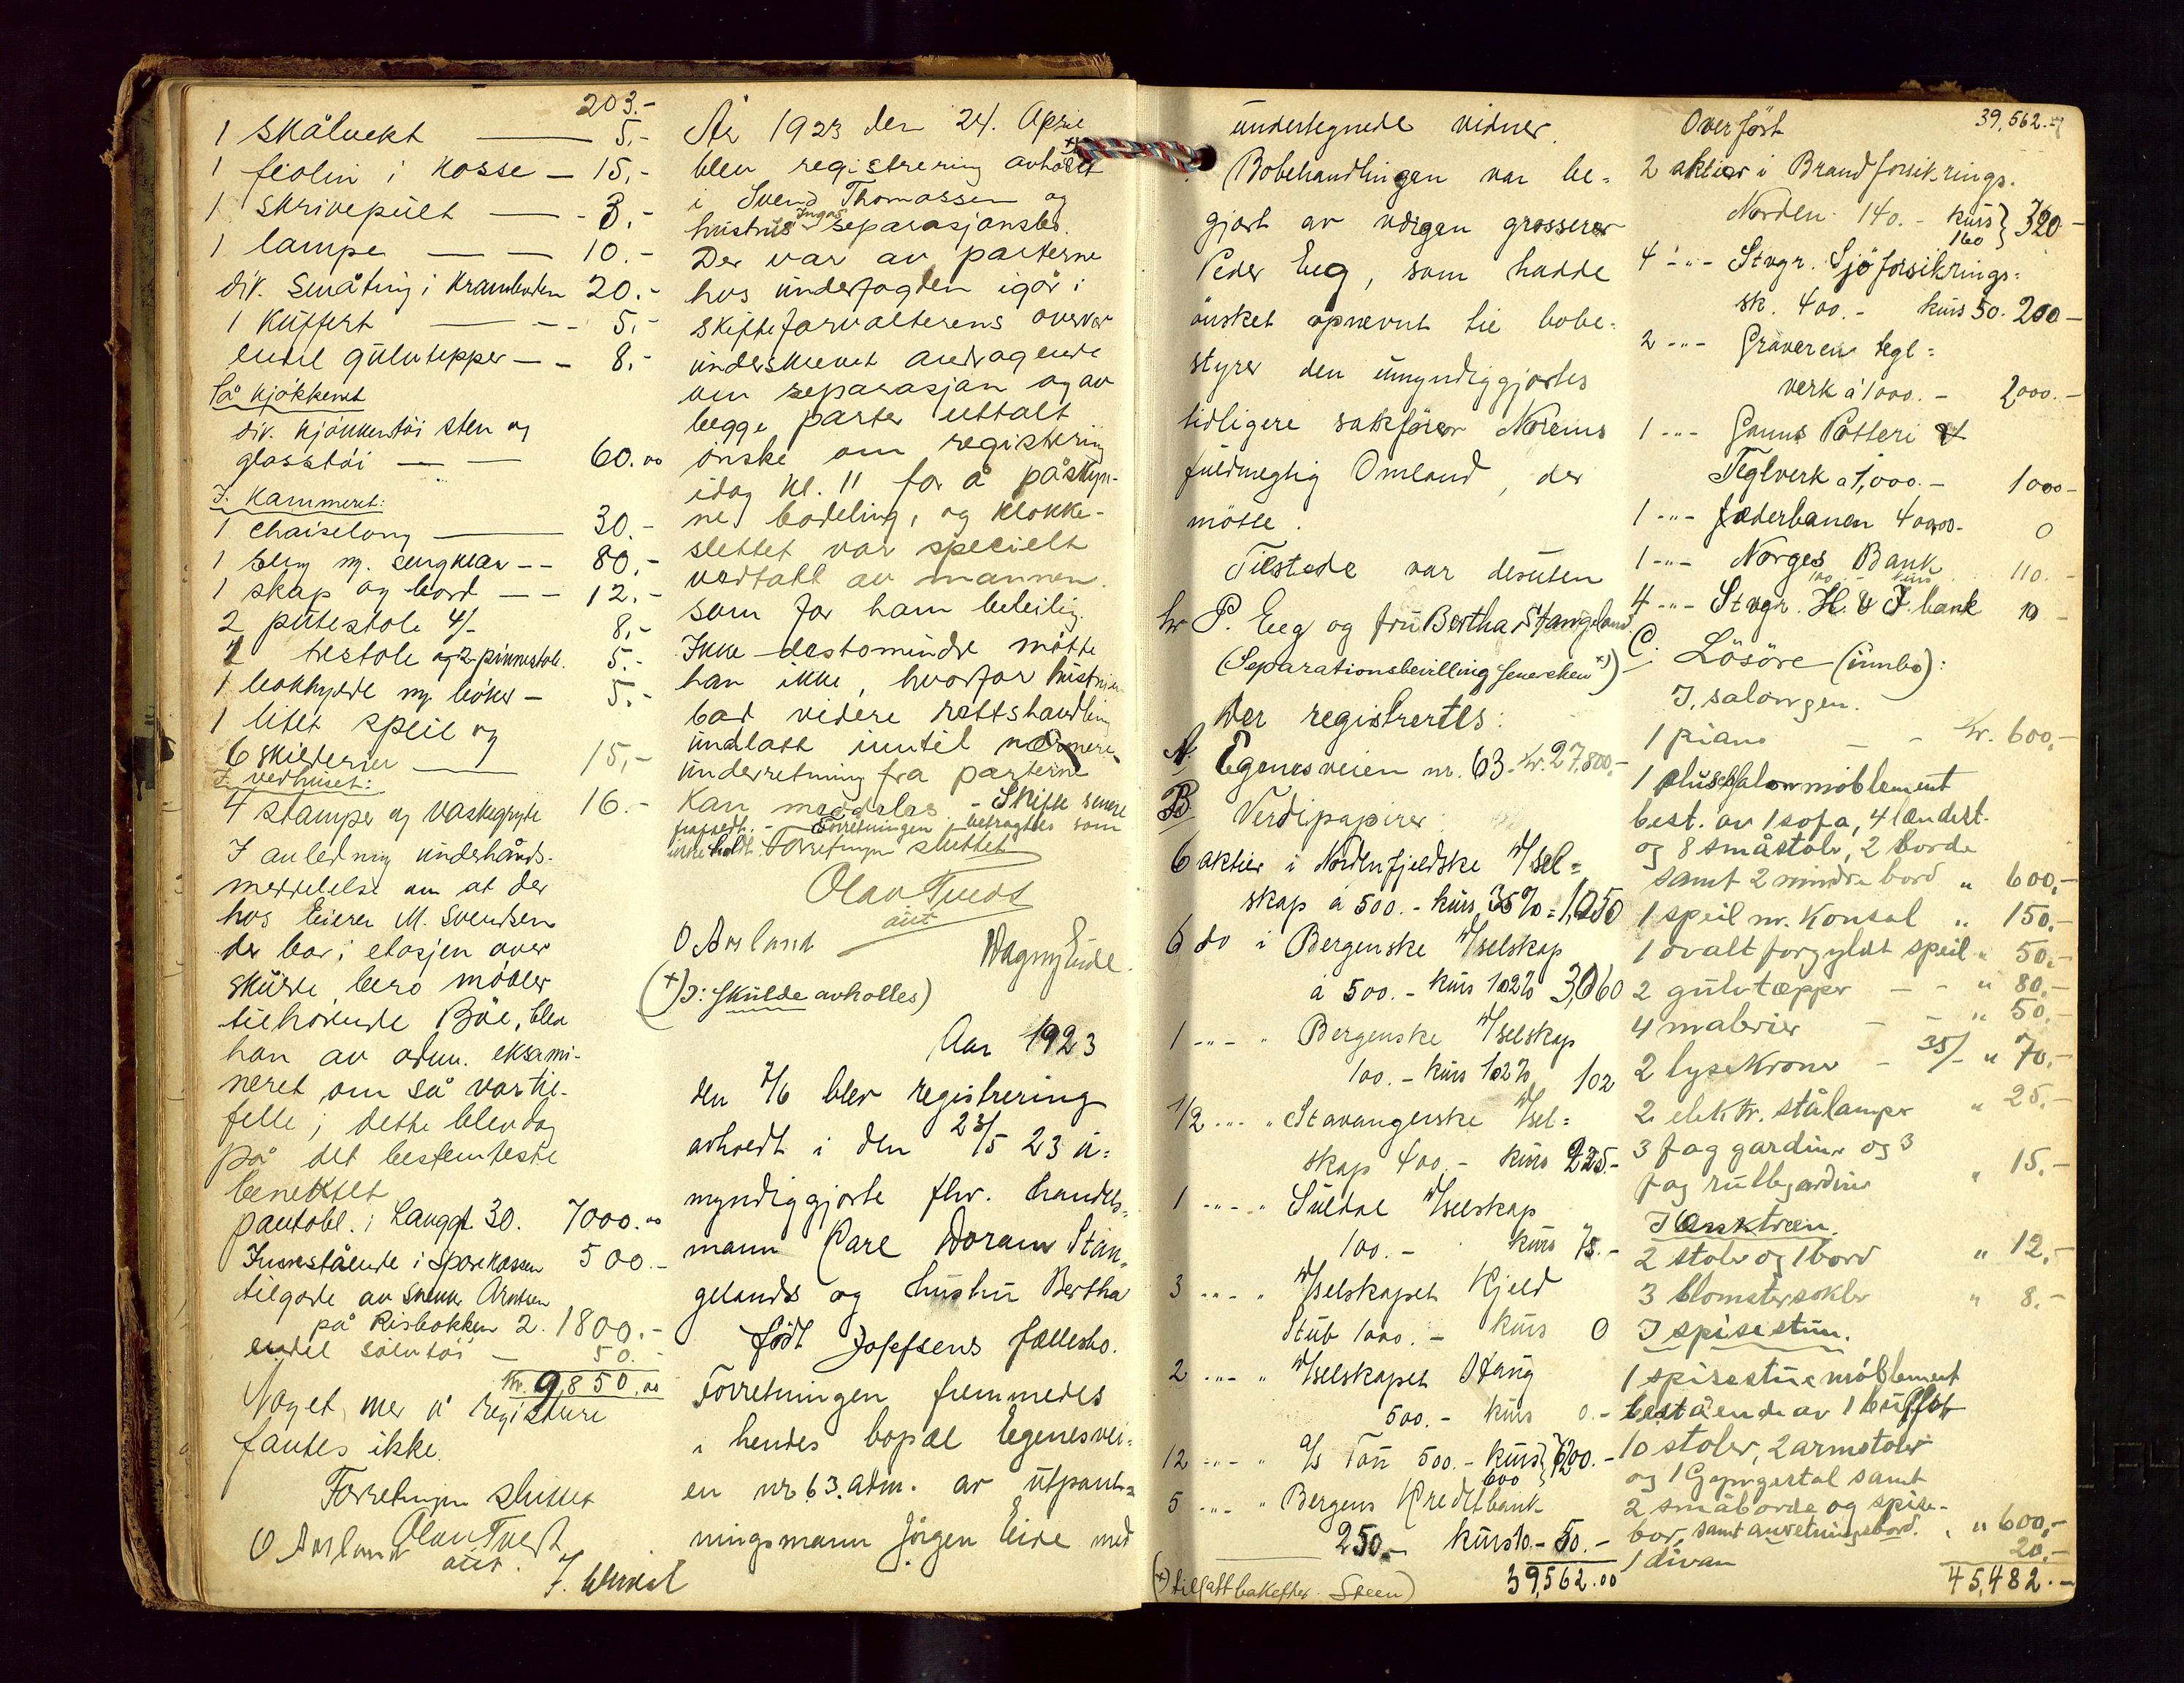 203.-
1 skålvekt — 5.-
1 fiolin i kasse — 15,-
1 skrivepult — 3.-
1 lampe — — 10.-
div. Småting i Kramboden 20.-
1 kuffert — - - 5,-
endel gulvtepper — - 8,-
På kjøkkenet
div. kjøkkentøi sten og
glasstøi — — 60.00
I. kammeret:
1 chaiselong — 30.-
1 seng m. sengklær - - 80,-
1 skap og bord — - 12.-
2 putestole 4/- 8,-
2 trestole og 2 pinnestole. 5.-
1 bokhylde m. bøker - 5.-
1 litet speil og
6 skilderier — 15,-
I. vedhuset:
4 stamper og vaskegryte 16.-
I anledning underhånds-
meddelelse om at der
hos Eieren M. Svendsen
der bor i etasjen over
skulde bero møbler
tilhørende Bøe, blev
han av adm. eksami-
neret om så var til-
felle; dette blev dog
på det bestemteste
benektet
pantobl. i Langgt. 30. 7000.00
Innestående i Sparekassen 500.-
tilgode av Arntsen
på Risbakken 2. 1800.-
endel sølvtøi — 50.-
Kr. 9,850,00
Noget mer å registrere
fantes ikke.
Forretningen sluttet
O Aarsland Olav Tveds
aut.
År 1923 den 24. April
blev registrering avholdt +)
i Svend Thomassen og
hustrus Ingas separasjonsbo.
Der var av parterne
hos underfogden igår i
skifteforvalterens overvær
underskrevet andragende
om separasjon og av
begge parter uttalt
ønske om registrering
idag kl. 11 for å påskyn-
ne bodeling, og klokke-
slettet var specielt
vedtatt av mannen
som for ham beleilig.
Ikke destomindre møtte
han ikke, hvorfor hustruen
bad videre rettshandling
undlatt inntil nærmere
underretning fra parterne
kan meddeles. - Skifte senere
frafaldt. - Forretningen betragtes som
ikke holdt. Forretningen sluttet
Olav Tveds
aut
O Aarsland Dagny Eide.
(+) ɔ: skulde avholles)
Aar 1923
den 7/6 blev registrering
avholdt i den 23/5 23 u=
myndiggjorte fhv. handels=
mann Carl Doram Stan=
gelands og hustru Bertha
født Josefsens fællesbo.
Forretningen fremmedes
i hendes bopæl Egenesvei=
en nr 63. adm. av utpant=
ningsmann Jörgen Eide med
undertegnede vidner.
Bobehandlingen var be=
gjært av værgen grosserer
Peder Eeg, som hadde
ønsket opnevnt til bobe=
styrer den umyndiggjortes
tidligere sakfører Noreims
fuldmegtig Omland, der
møtte.
Tilstede var desuten
hr P. Eeg og fru Bertha Stangeland
(Separationsbevilling +))
Der registrertes:
A. Egenesveien nr. 63. Kr. 27,800.-
B. Verdipapirer
6 aktier i Nordenfjeldske D/sel=
skap à 500.- kurs 35% = 1,050
6 do i Bergenske D/selskap
à 500.- kurs 102% 3,060
1 - " - " Bergenske D/selskap
100.- kurs 102% 102
1/2 - " - " Stavangerske D/sel=
skap 400.- kurs 225.-
1 - " - " Suldal D/selskap
100.- kurs 75.-
3 - " - " D/selskapet Kjeld
Stub 1000.- kurs 0
2 - " - " D/selskapet Haug
500.- kurs 0.-
12 - " - " A/S Tou 500.- kurs 600 } 7200.-
5 - " - " Bergens Kreditbank
250.- kurs 10.- 50.-
39,562.00
(+) tilsatt bakefter. Steen)
Overført 39,562.-
2 aktier i Brandforsikrings.
Norden 140.- kurs 160 } 320-
4 - " - Stvgr. Sjøforsikrings=
sk. 400.- kurs 50. 200-
2 - " - Graveren tegl=
verk à 1000.- 2000.-
1 - " - Ganns Potteri &
Teglverk a 1,000.- 1000-
1 - " - Jæderbanen 400,00- 0
1 - " - Norges Bank
100.- kurs 110.-
4 - " - Stvgr. H. & I. bank 10 -
C. Løsøre (innbo):
I. salongen.
1 piano — - Kr. 600,-
1 plusch salonmøblement
best. av 1 sofa, 4 lændest.
og 8 småstoler, 2 borde
samt 2 mindre bord " 600,-
1 speil m. Konsol " 150,-
1 ovalt forgyldt speil " 50,-
2 gulvtæpper - - " 80,-
4 malerier - - " 50,-
2 lysekroner - 35/- " 70,-
2 elektr. stålamper " 25.-
3 fag gardiner og 3
fag rullegardiner " 15.-
I Karnktræn.
2 stoler og 1 bord " 12,-
3 blomstersokler " 8.-
I spisestuen.
1 spisestuemøblement
bestående av 1 buffet
10 stoler, 2 armstoler
og 1 Gyngestol samt
2 småborde og spise-
bor, samt anretningsbord. " 600,-
1 divan 20.-
45,482.-